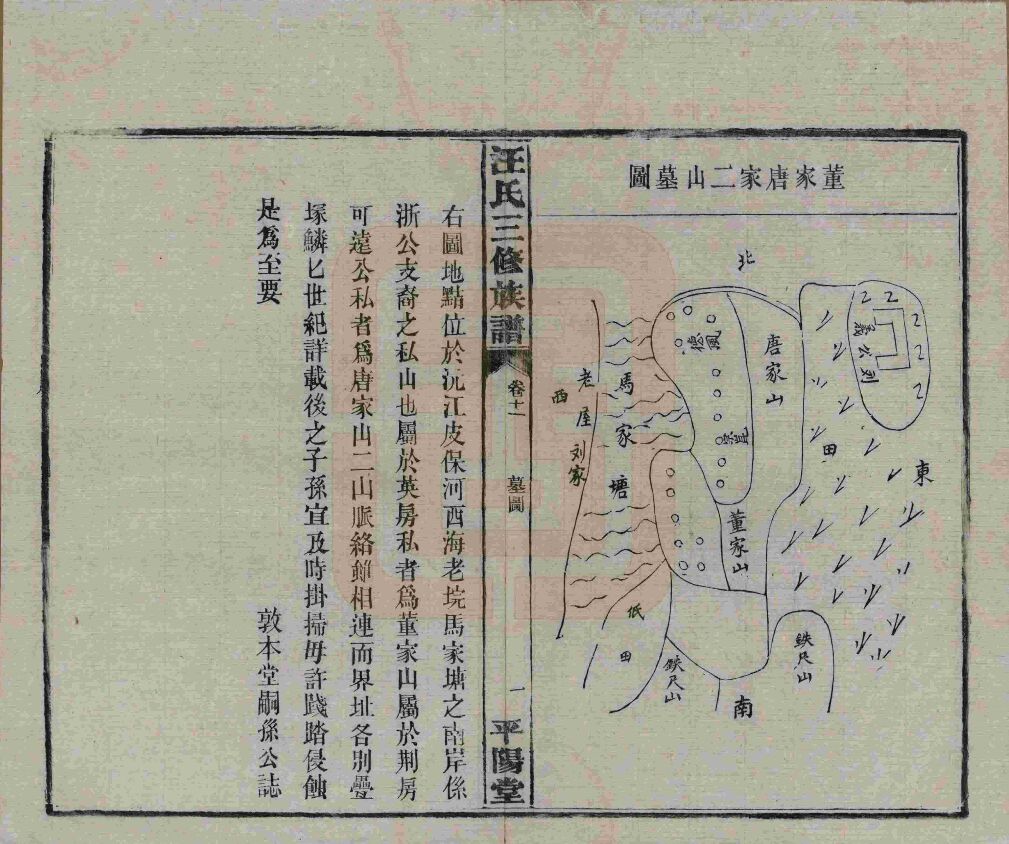 董家唐家二山墓圖
北
東
義公剅
田
唐家山
德
風
崇
崑
董家山
馬家塘
老屋刘家
西
低田
鉄尺山
鉄尺山
南
汪氏三修族譜
卷十一
墓圖
一
平陽堂
右圖地點位於沅江皮保河西海老垸馬家塘之南岸係
浙公支裔之私山也屬於英房私者爲董家山屬於荆房
可遠公私者爲唐家山二山脈絡雖相連而界址各別疊
塚鱗匕世紀詳載後之子孫宜及時掛掃毋許踐踏侵蝕
是爲至要
敦本堂嗣孫公誌